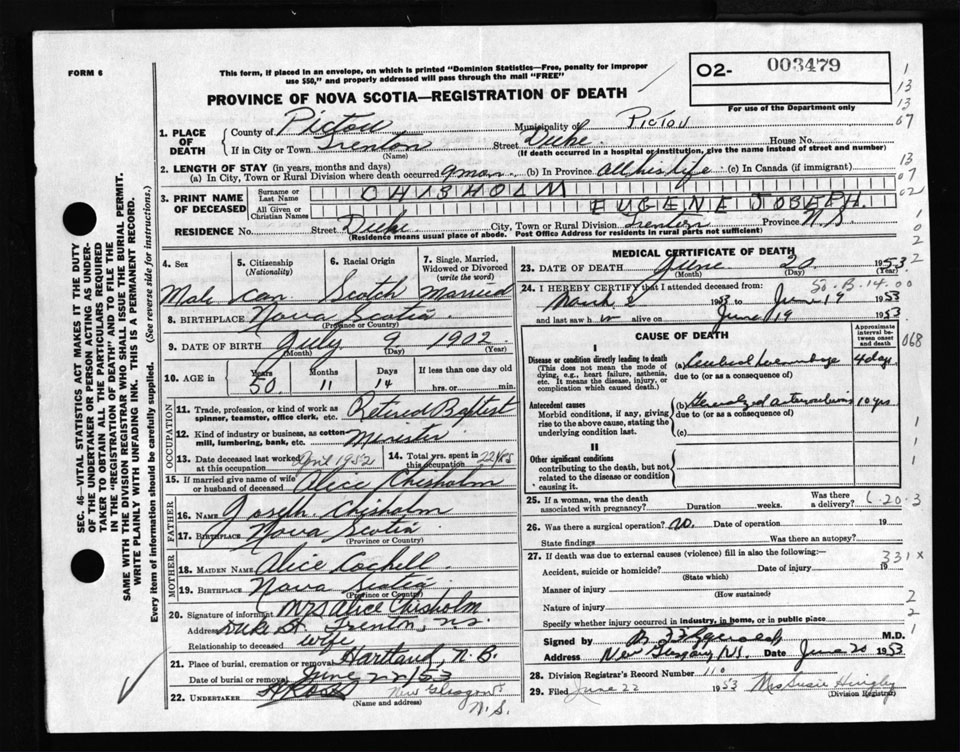 FORM 6
This form, if placed in an envelope, on which is printed "Dominion Statistics—Free, penalty for improper
use $50," and properly addressed will pass through the mail "FREE"
O2- 003479
For use of the Department only
PROVINCE OF NOVA SCOTIA—REGISTRATION OF DEATH
1
13
13
67
1. PLACE OF DEATH
County of Pictou Municipality of Pictou
If in City or Town Trenton (Name) Street Duke House No.
(If death occurred in a hospital or institution, give the name instead of street and number)
2. LENGTH OF STAY (in years, months and days)
(a) In City, Town or Rural Division where death occurred 9 mon. (b) In Province All his life (c) In Canada (if immigrant)
13
07
02
3. PRINT NAME OF DECEASED
Surname or Last Name CHISHOLM
All Given or Christian Names EUGENE JOSEPH
RESIDENCE No. Street Duke City, Town or Rural Division Trenton Province N.S.
(Residence means usual place of abode. Post Office Address for residents in rural parts not sufficient)
4. Sex Male
5. Citizenship (Nationality) Can
6. Racial Origin Scotch
7. Single, Married, Widowed or Divorced (write the word) Married
8. BIRTHPLACE Nova Scotia
(Province or Country)
9. DATE OF BIRTH July 9 1902
(Month) (Day) (Year)
10. AGE in Years 50 Months 11 Days 14 If less than one day hrs. or min.
OCCUPATION
11. Trade, profession, or kind of work as spinner, teamster, office clerk, etc. Retired Baptist
12. Kind of industry or business, as cotton mill, lumbering, bank, etc. Minister
13. Date deceased last worked at this occupation April 1952
14. Total yrs. spent in this occupation 22 yrs
15. If married give name of wife or husband of deceased Alice Chisholm
FATHER
16. NAME Joseph Chisholm
17. BIRTHPLACE Nova Scotia
(Province or Country)
MOTHER
18. MAIDEN NAME Alice
19. BIRTHPLACE Nova Scotia
(Province or Country)
20. Signature of informant Mrs Alice Chisholm
Address Duke St. Trenton, N.S.
Relationship to deceased Wife
21. Place of burial, cremation or removal Hartland, N.B.
Date of burial or removal June 22/53
22. UNDERTAKER New Glasgow N.S.
(Name and address)
MEDICAL CERTIFICATE OF DEATH
23. DATE OF DEATH June 20 1953
(Month) (Day) (Year)
24. I HEREBY CERTIFY that I attended deceased from:
March 2 1953 to June 19 1953
and last saw h alive on June 19 1953
CAUSE OF DEATH
Approximate interval between onset and death
I
Disease or condition directly leading to death
(This does not mean the mode of dying, e.g., heart failure, asthenia, etc. It means the disease, injury, or complication which caused death.)
(a) Cerebral hemorrhage 4 days
due to (or as a consequence of)
Antecedent causes
Morbid conditions, if any, giving rise to the above cause, stating the underlying condition last.
(b) Generalized arteriosclerosis 10 yrs
due to (or as a consequence of)
(c)
II
Other significant conditions
contributing to the death, but not related to the disease or condition causing it.
068
25. If a woman, was the death associated with pregnancy? Duration weeks. Was there a delivery?
26. Was there a surgical operation? No. Date of operation 19
State findings Was there an autopsy?
27. If death was due to external causes (violence) fill in also the following:—
331 X
Accident, suicide or homicide? (State which) Date of injury 19
Manner of injury
(How sustained)
Nature of injury
Specify whether injury occurred in industry, in home, or in public place
Signed by M.D.
Address New Glasgow N.S. Date June 20 1953
28. Division Registrar's Record Number 110
29. Filed June 22 1953 Mrs Susie Hingley
(Division Registrar)
SEC. 46—VITAL STATISTICS ACT MAKES IT THE DUTY
OF THE UNDERTAKER OR PERSON ACTING AS UNDERTAKER
TO OBTAIN ALL THE PARTICULARS REQUIRED
IN THE "REGISTRATION OF DEATH" AND TO FILE THE
SAME WITH THE DIVISION REGISTRAR WHO SHALL ISSUE THE BURIAL PERMIT.
WRITE PLAINLY WITH UNFADING INK. THIS IS A PERMANENT RECORD.
Every item of information should be carefully supplied. (See reverse side for instructions.)